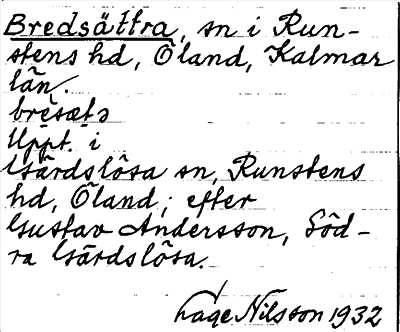 Bredsättra, sn i Run-
stens hd, Öland, Kalmar
län.
bresætə
Uppt. i
Gärdslösa sn, Runstens
hd, Öland; efter
Gustav Andersson, Söd-
ra Gärdslösa.
Lage Nilsson 1932